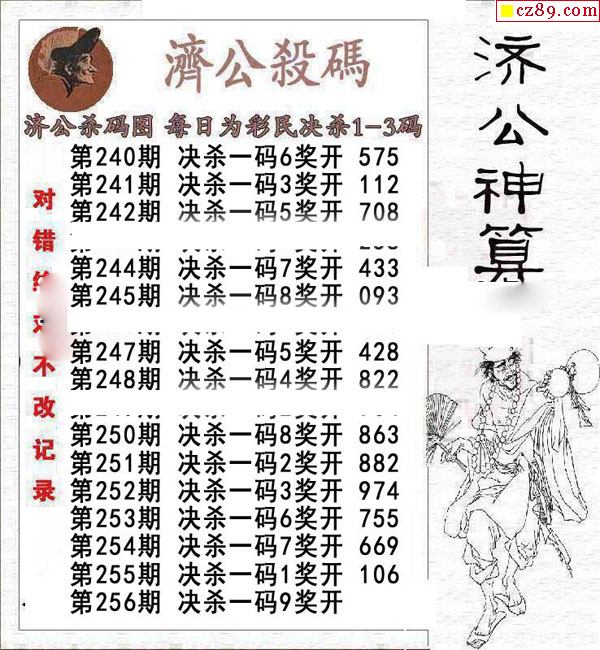 cz89.com
濟公殺碼
济公神算
济公杀码图 每日为彩民决杀1-3码
对错
不改记录
第240期 决杀一码6奖开 575
第241期 决杀一码3奖开 112
第242期 决杀一码5奖开 708
第244期 决杀一码7奖开 433
第245期 决杀一码8奖开 093
第247期 决杀一码5奖开 428
第248期 决杀一码4奖开 822
第250期 决杀一码8奖开 863
第251期 决杀一码2奖开 882
第252期 决杀一码3奖开 974
第253期 决杀一码6奖开 755
第254期 决杀一码7奖开 669
第255期 决杀一码1奖开 106
第256期 决杀一码9奖开